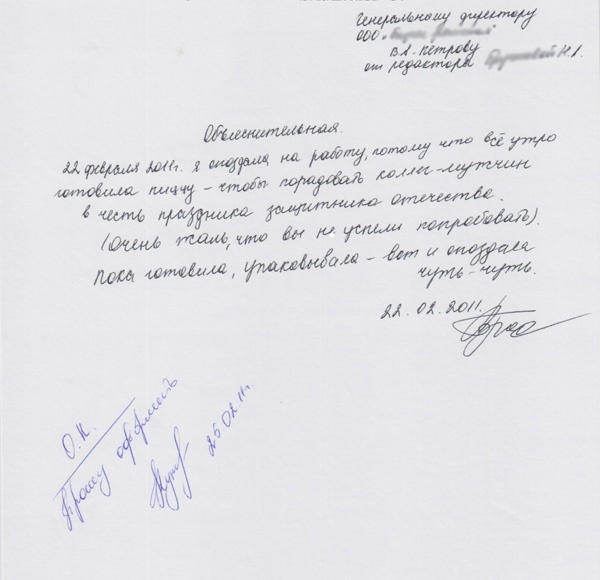 Генеральному директору
ООО
В.А. Петрову
от редактора Н.А.
Объяснительная.
22 февраля 2011г. я опоздала на работу, потому что всё утро
готовила пиццу - чтобы порадовать коллег-мужчин
в честь праздника защитника отечества.
(Очень жаль, что вы не успели попробовать).
Пока готовила, упаковывала - вот и опоздала
чуть-чуть.
22.02.2011.
О.К.
Прошу оформить
25.02.11г.